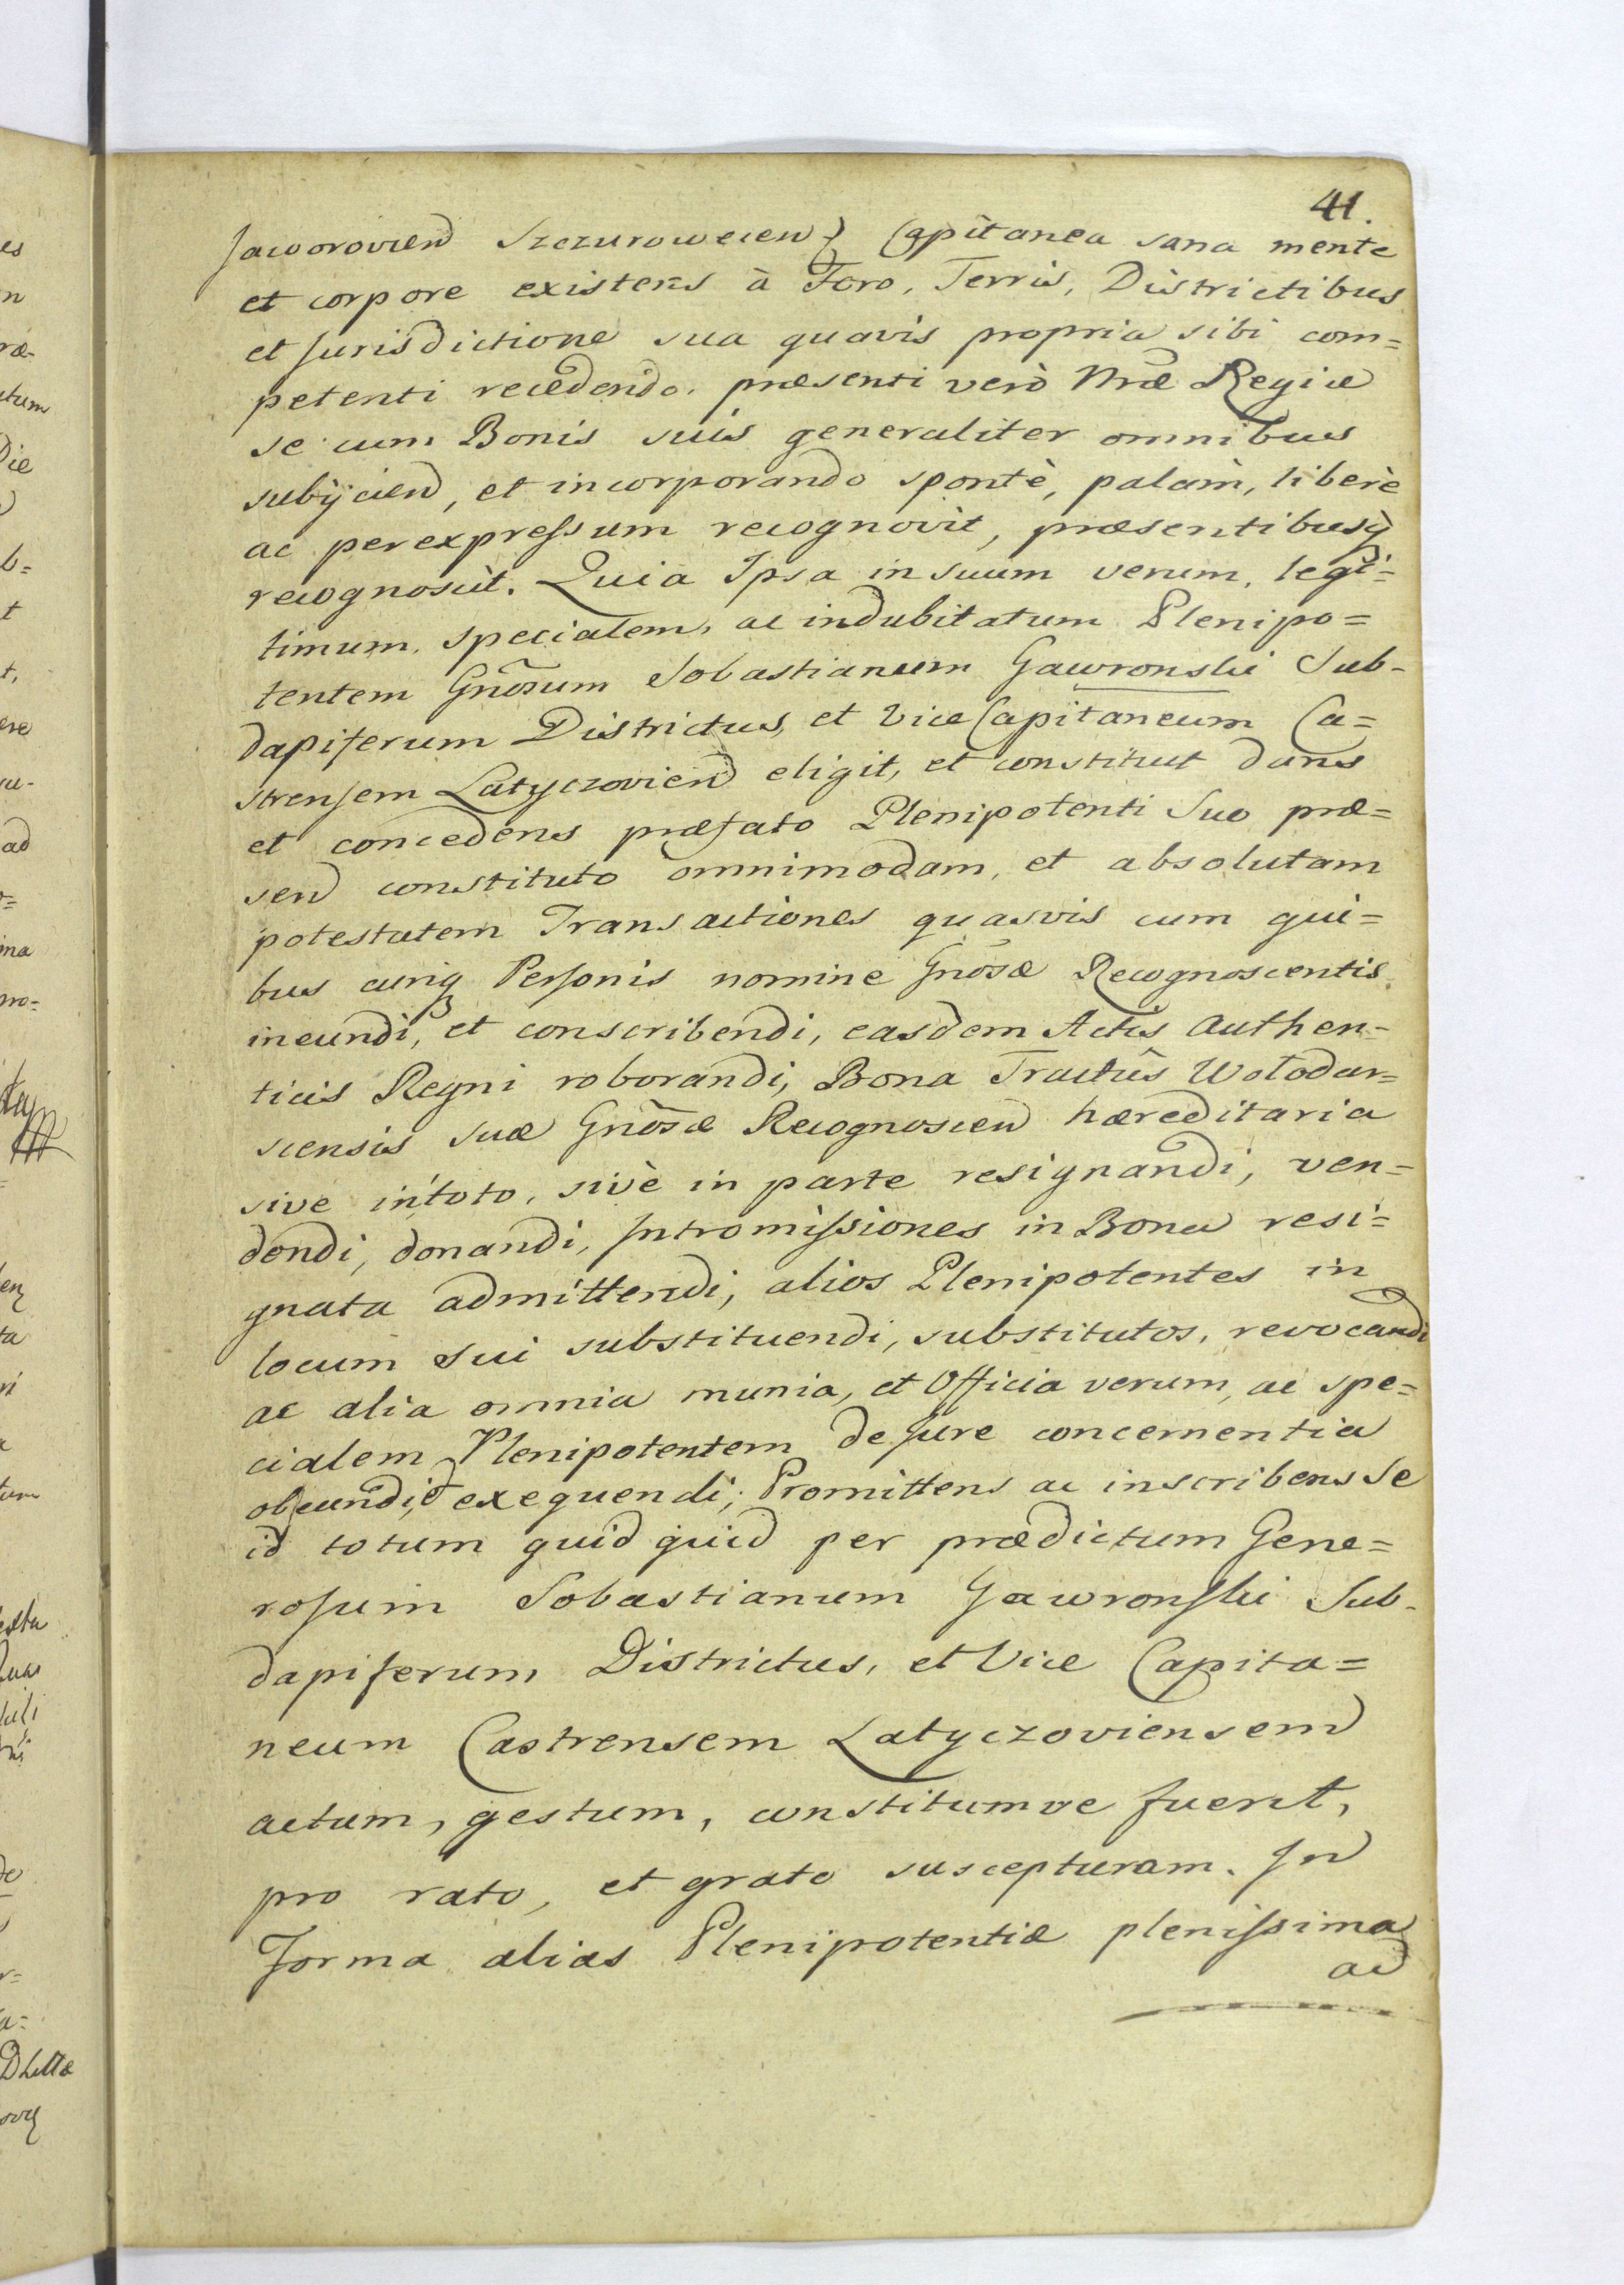 41.
Jaworovien Szczurowecen Capitanea sana mente
et corpore existens à Foro, Terris, Districtibus
et Jurisdictione sua quavis propria sibi com=
petenti recedendo, præsenti verò Nræ Regiæ
se cum Bonis suis generaliter omnibus
subijcien, et incorporando spontè, palàm, liberè
ac per expressum recognovit, præsentibusq
recognoscit. Quia Ipsa in suum verum, legi=
timum, specialem, ac indubitatum Plenipo=
tentem Gnosum Sobastianum Gawronski Sub-
dapiferum Districtus, et Vice Capitaneum Ca=
strensem Latyczovien eligit, et constituit dans
et concedens præfato Plenipotenti Suo præ=
sen constituto omnimodam, et absolutam
potestatem Transactiones quasvis cum qui=
bus cunq Personis nomine Gnosæ Recognoscentis
ineundi, et conscribendi, easdem Actis Authen-
ticis Regni roborandi, Bona Tractûs Wolodar=
scensis suæ Gnosæ Recognoscen hæreditaria
sive in toto, sivè in parte resignandi, ven=
dendi, donandi, Intromissiones in Bona resi=
gnata admittendi, alios Plenipotentes in
locum sui substituendi, substitutos, revocandi
ac alia omnia munia, et Officia verum, ac spe=
cialem Plenipotentem de Jure concernentia
obeundi, et exequendi; Promittens ac inscribens se
id totum quid quid per prædictum Gene=
rosum Sobastianum Gawronski Sub-
dapiferum Districtus, et Vice Capita=
neum Castrensem Latyczoviensem
actum, gestum, constitumve fuerit,
pro rato, et grato suscepturam. In
Forma alias Plenipotentiæ plenissima
ad